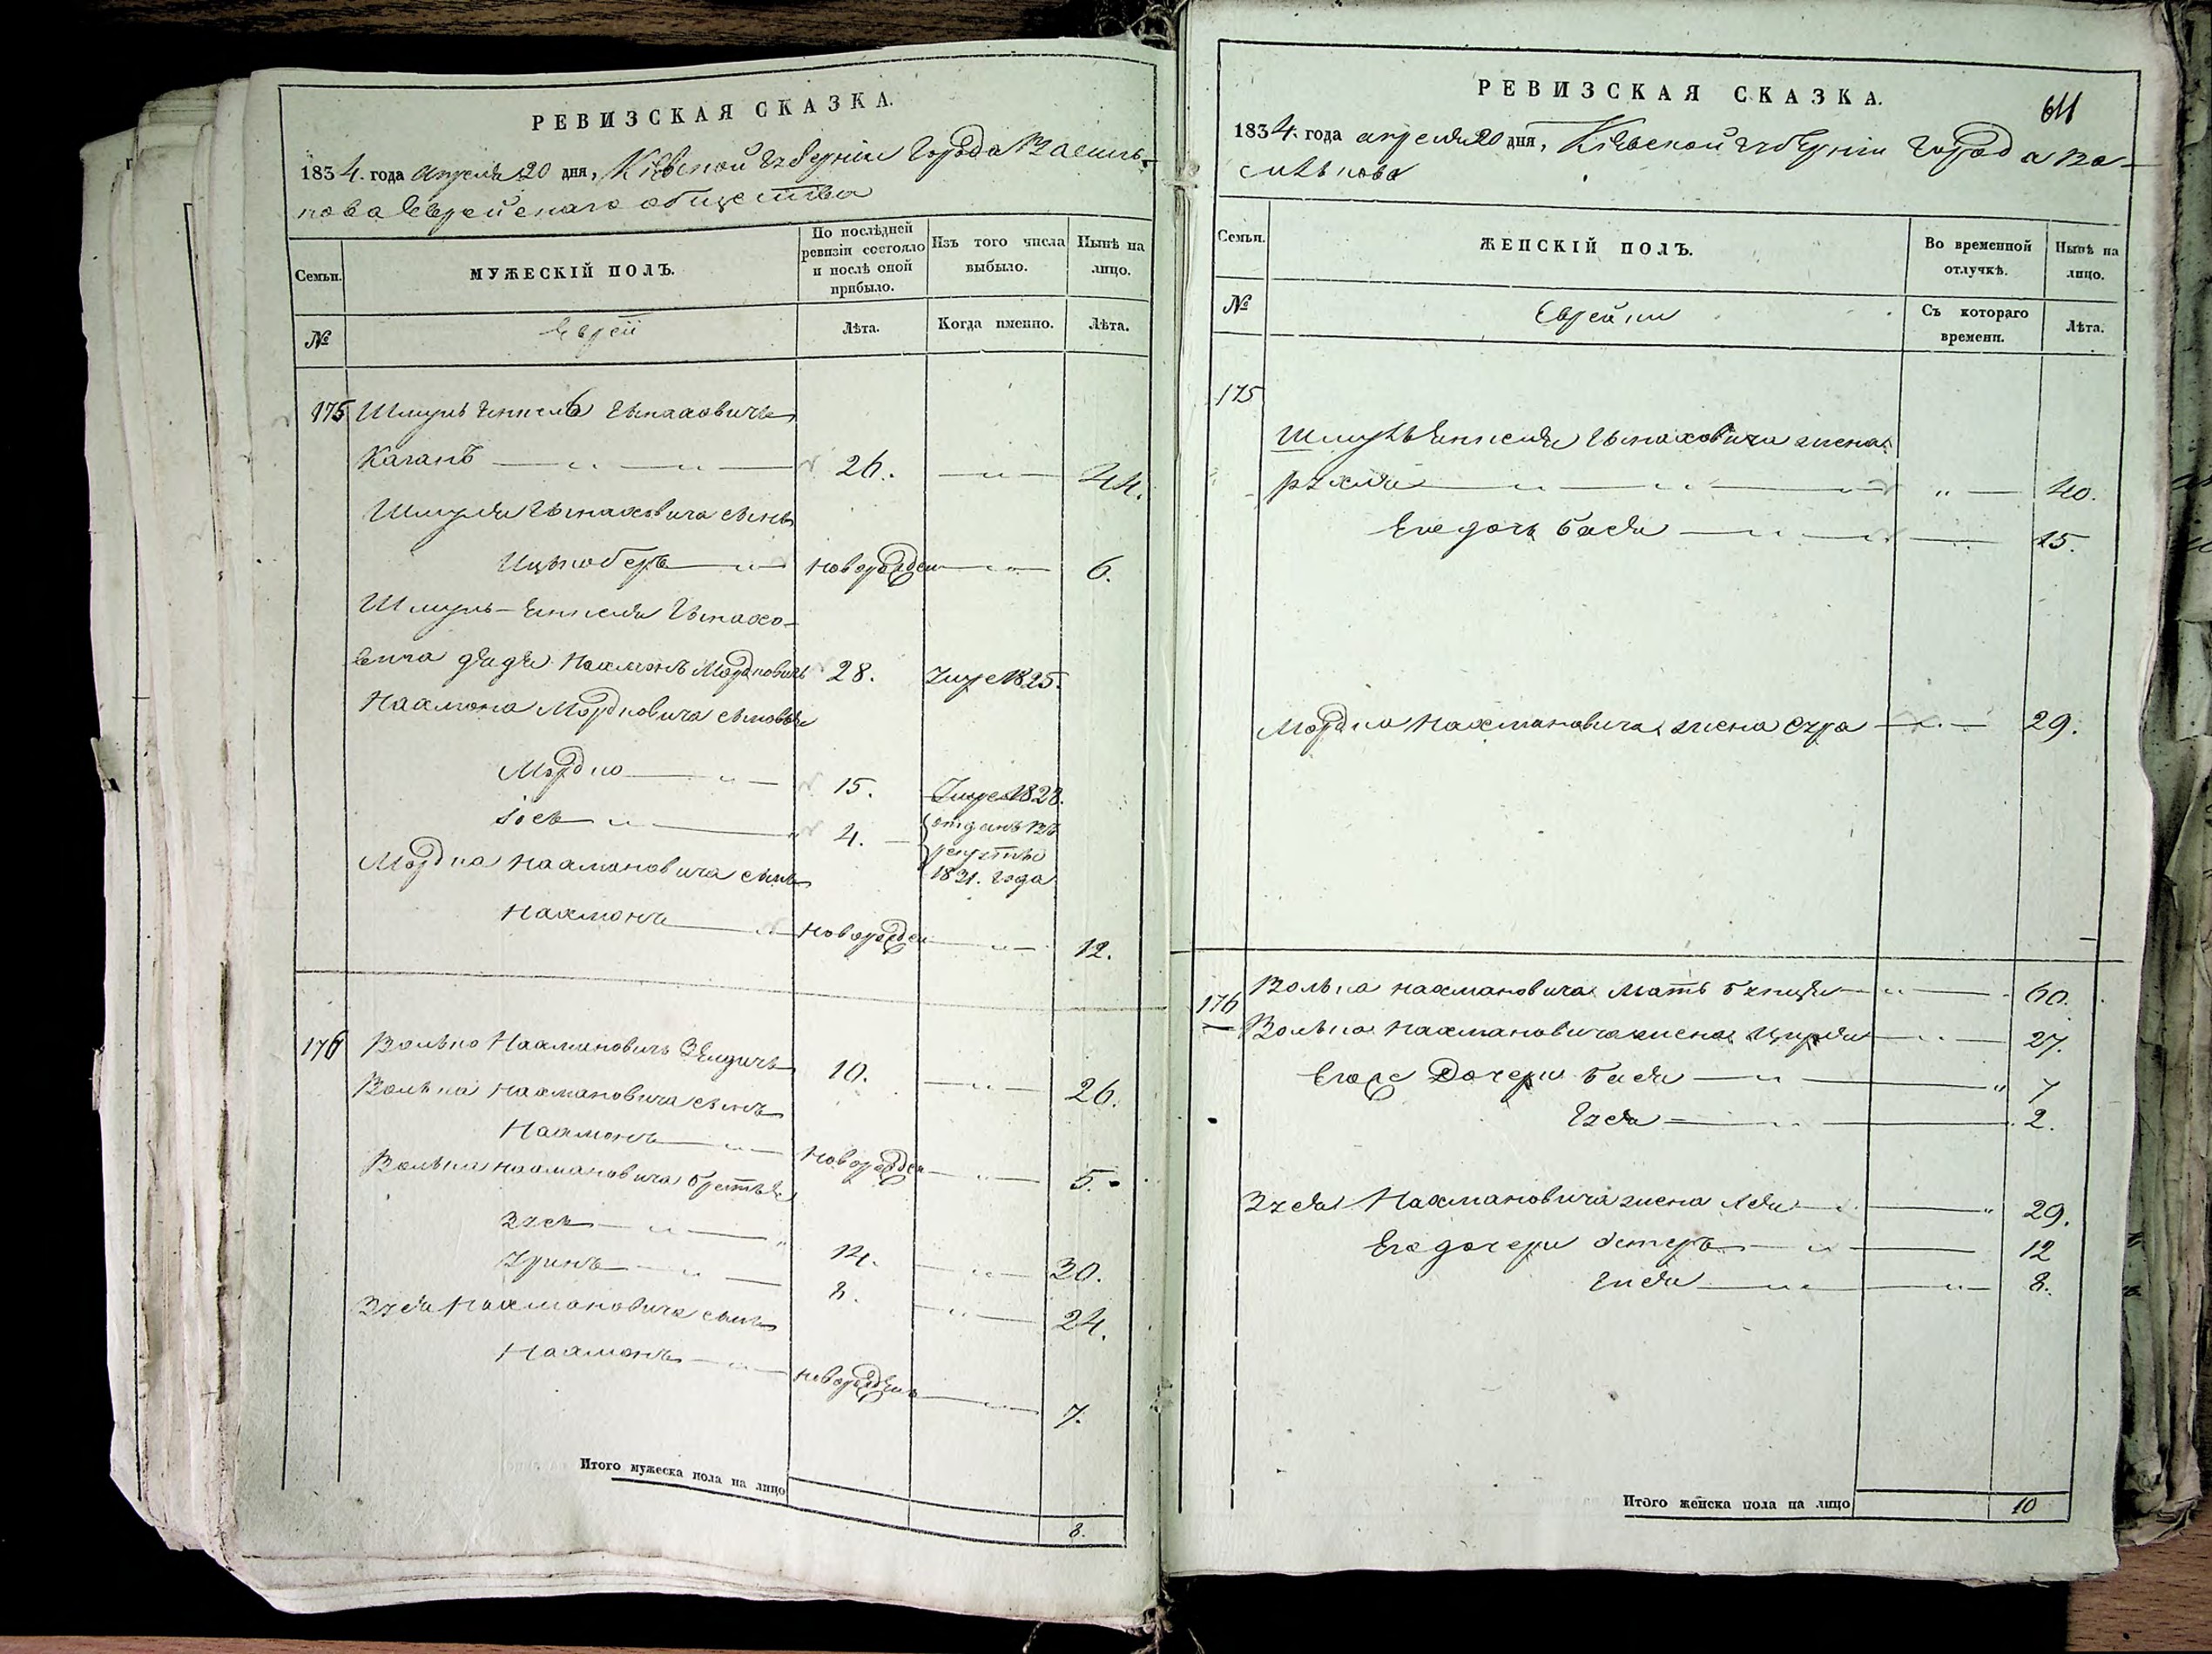 РЕВИЗСКАЯ СКАЗКА.
1834. года Апреля 20 дня, Кіевской губерніи города Василь-
кова Еврейскаго общества
Семьи.
МУЖЕСКІЙ ПОЛЪ.
По послѣдней ревизіи состояло и послѣ оной прибыло.
Изъ того числа выбыло.
Нынѣ на лицо.
№
Евреи
Лѣта.
Когда именно.
Лѣта.
175 Шмуль Гынаховичъ
Каганъ 26. 44.
Шмуля Гынаховича сынъ
Ицькоберъ новорожден 6.
Шмуль- Гынахо-
вича дядя Нахманъ Мордковичь 28. Умре 1825.
Нахмана Мордковича сыновья
Мордко 15. Умре 1828.
Іось 4. отданъ въ рекруты 1831. года
Мордка Нахмановича сынъ
Нахманъ новорожден 12.
176 Волько Нахмановичь 10. 26.
Волька Нахмановича сынъ
Нахманъ новорожден 5.
Волька Нахмановича братья
Зусь 14. 30.
Уринъ 8. 24.
Зуся Нахмановича сынъ
Нахманъ новорожденъ 7.
Итого мужеска пола на лицо 8.
РЕВИЗСКАЯ СКАЗКА.
611
1834. года апреля 20 дня, Кіевской губерніи города Ва-
силькова
Семьи.
ЖЕНСКІЙ ПОЛЪ.
Во временной отлучкѣ.
Нынѣ на лицо.
№
Еврейки
Съ котораго времени.
Лѣта.
175
Шмуль Гынаховича жена
Рухля 40.
Его дочь Бася 15.
Мордка Нахмановича жена Сура 29.
176 Волька Нахмановича мать 60.
Волька Нахмановича жена Цирля 27.
Его дочери Бася 7
2.
Зуся Нахмановича жена Лея 29.
Его дочери Эстеръ 12
8.
Итого женска пола на лицо 10